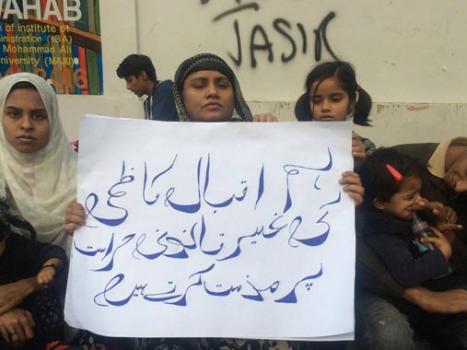 AHAB
n of institute of
ministration (IBA)
Mohammad Ali
iversity (MAJU)
JASIR
ہم اقبال کاظمی
کی غیر قانونی حراست
پر مذمت کرتے ہیں